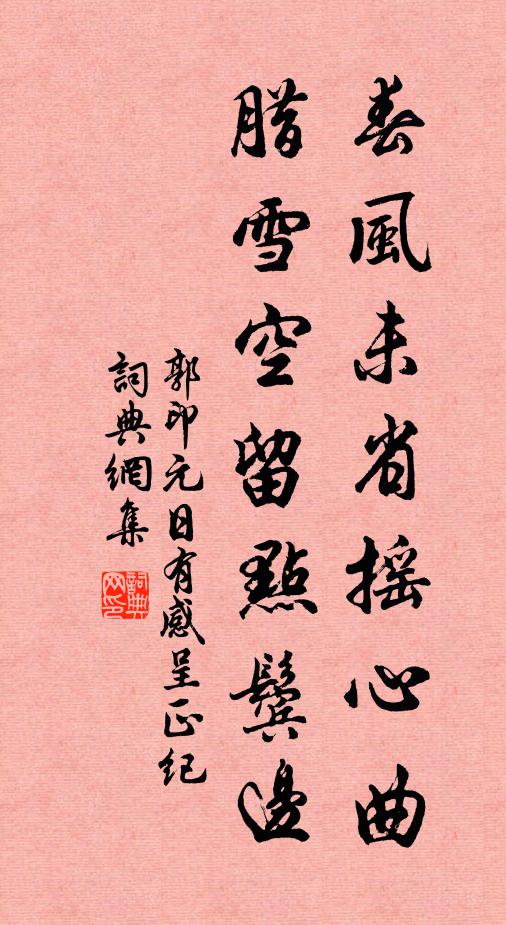 春風未省搖心曲
腊雪空留點鬢邊
郭印元日有感呈正紀
詞典網集
詞典网印